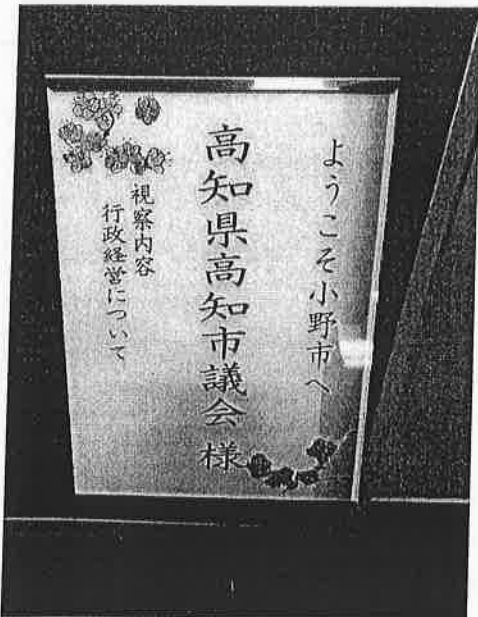 ようこそ小野市へ
高知県高知市議会様
視察内容
行政経営について